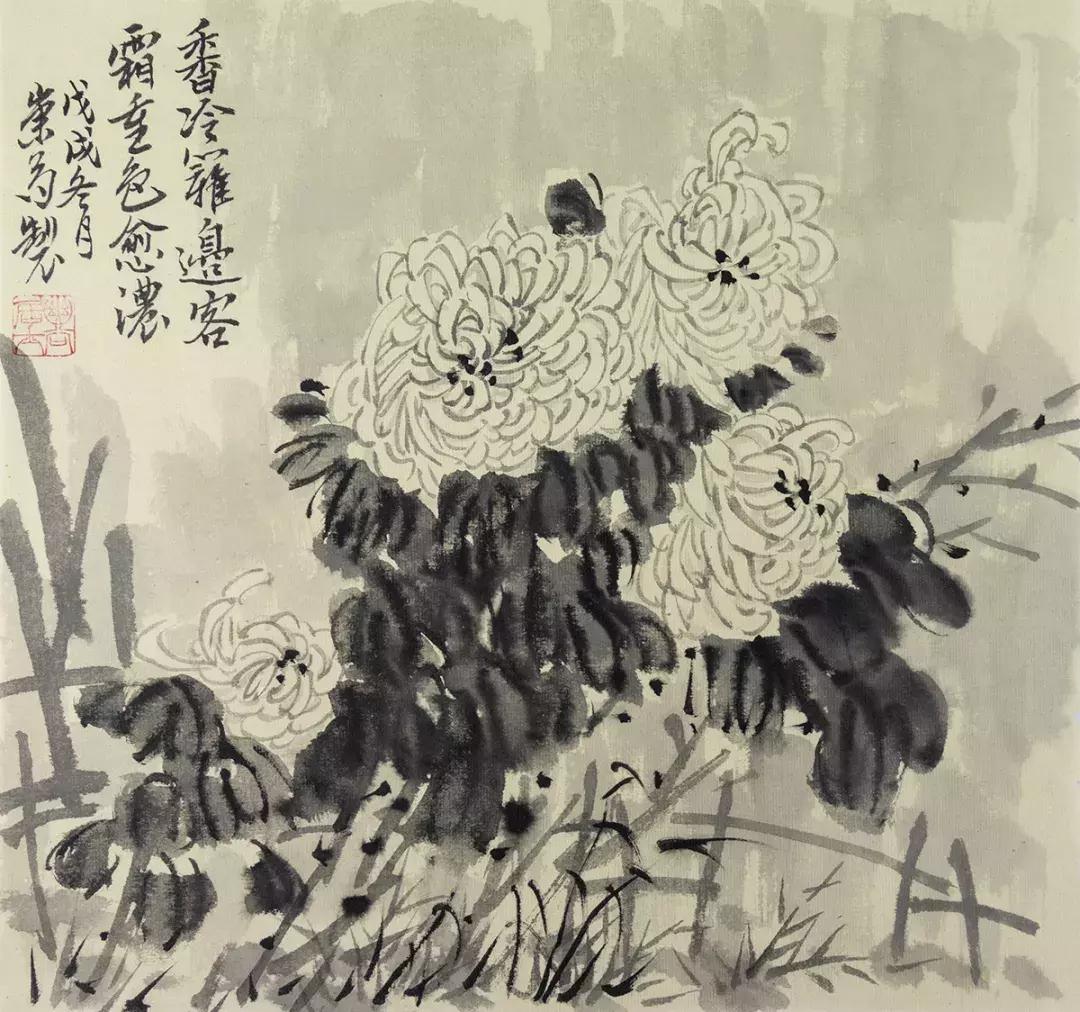 香冷籬邊客
霜重色愈濃
戊戌冬月
製